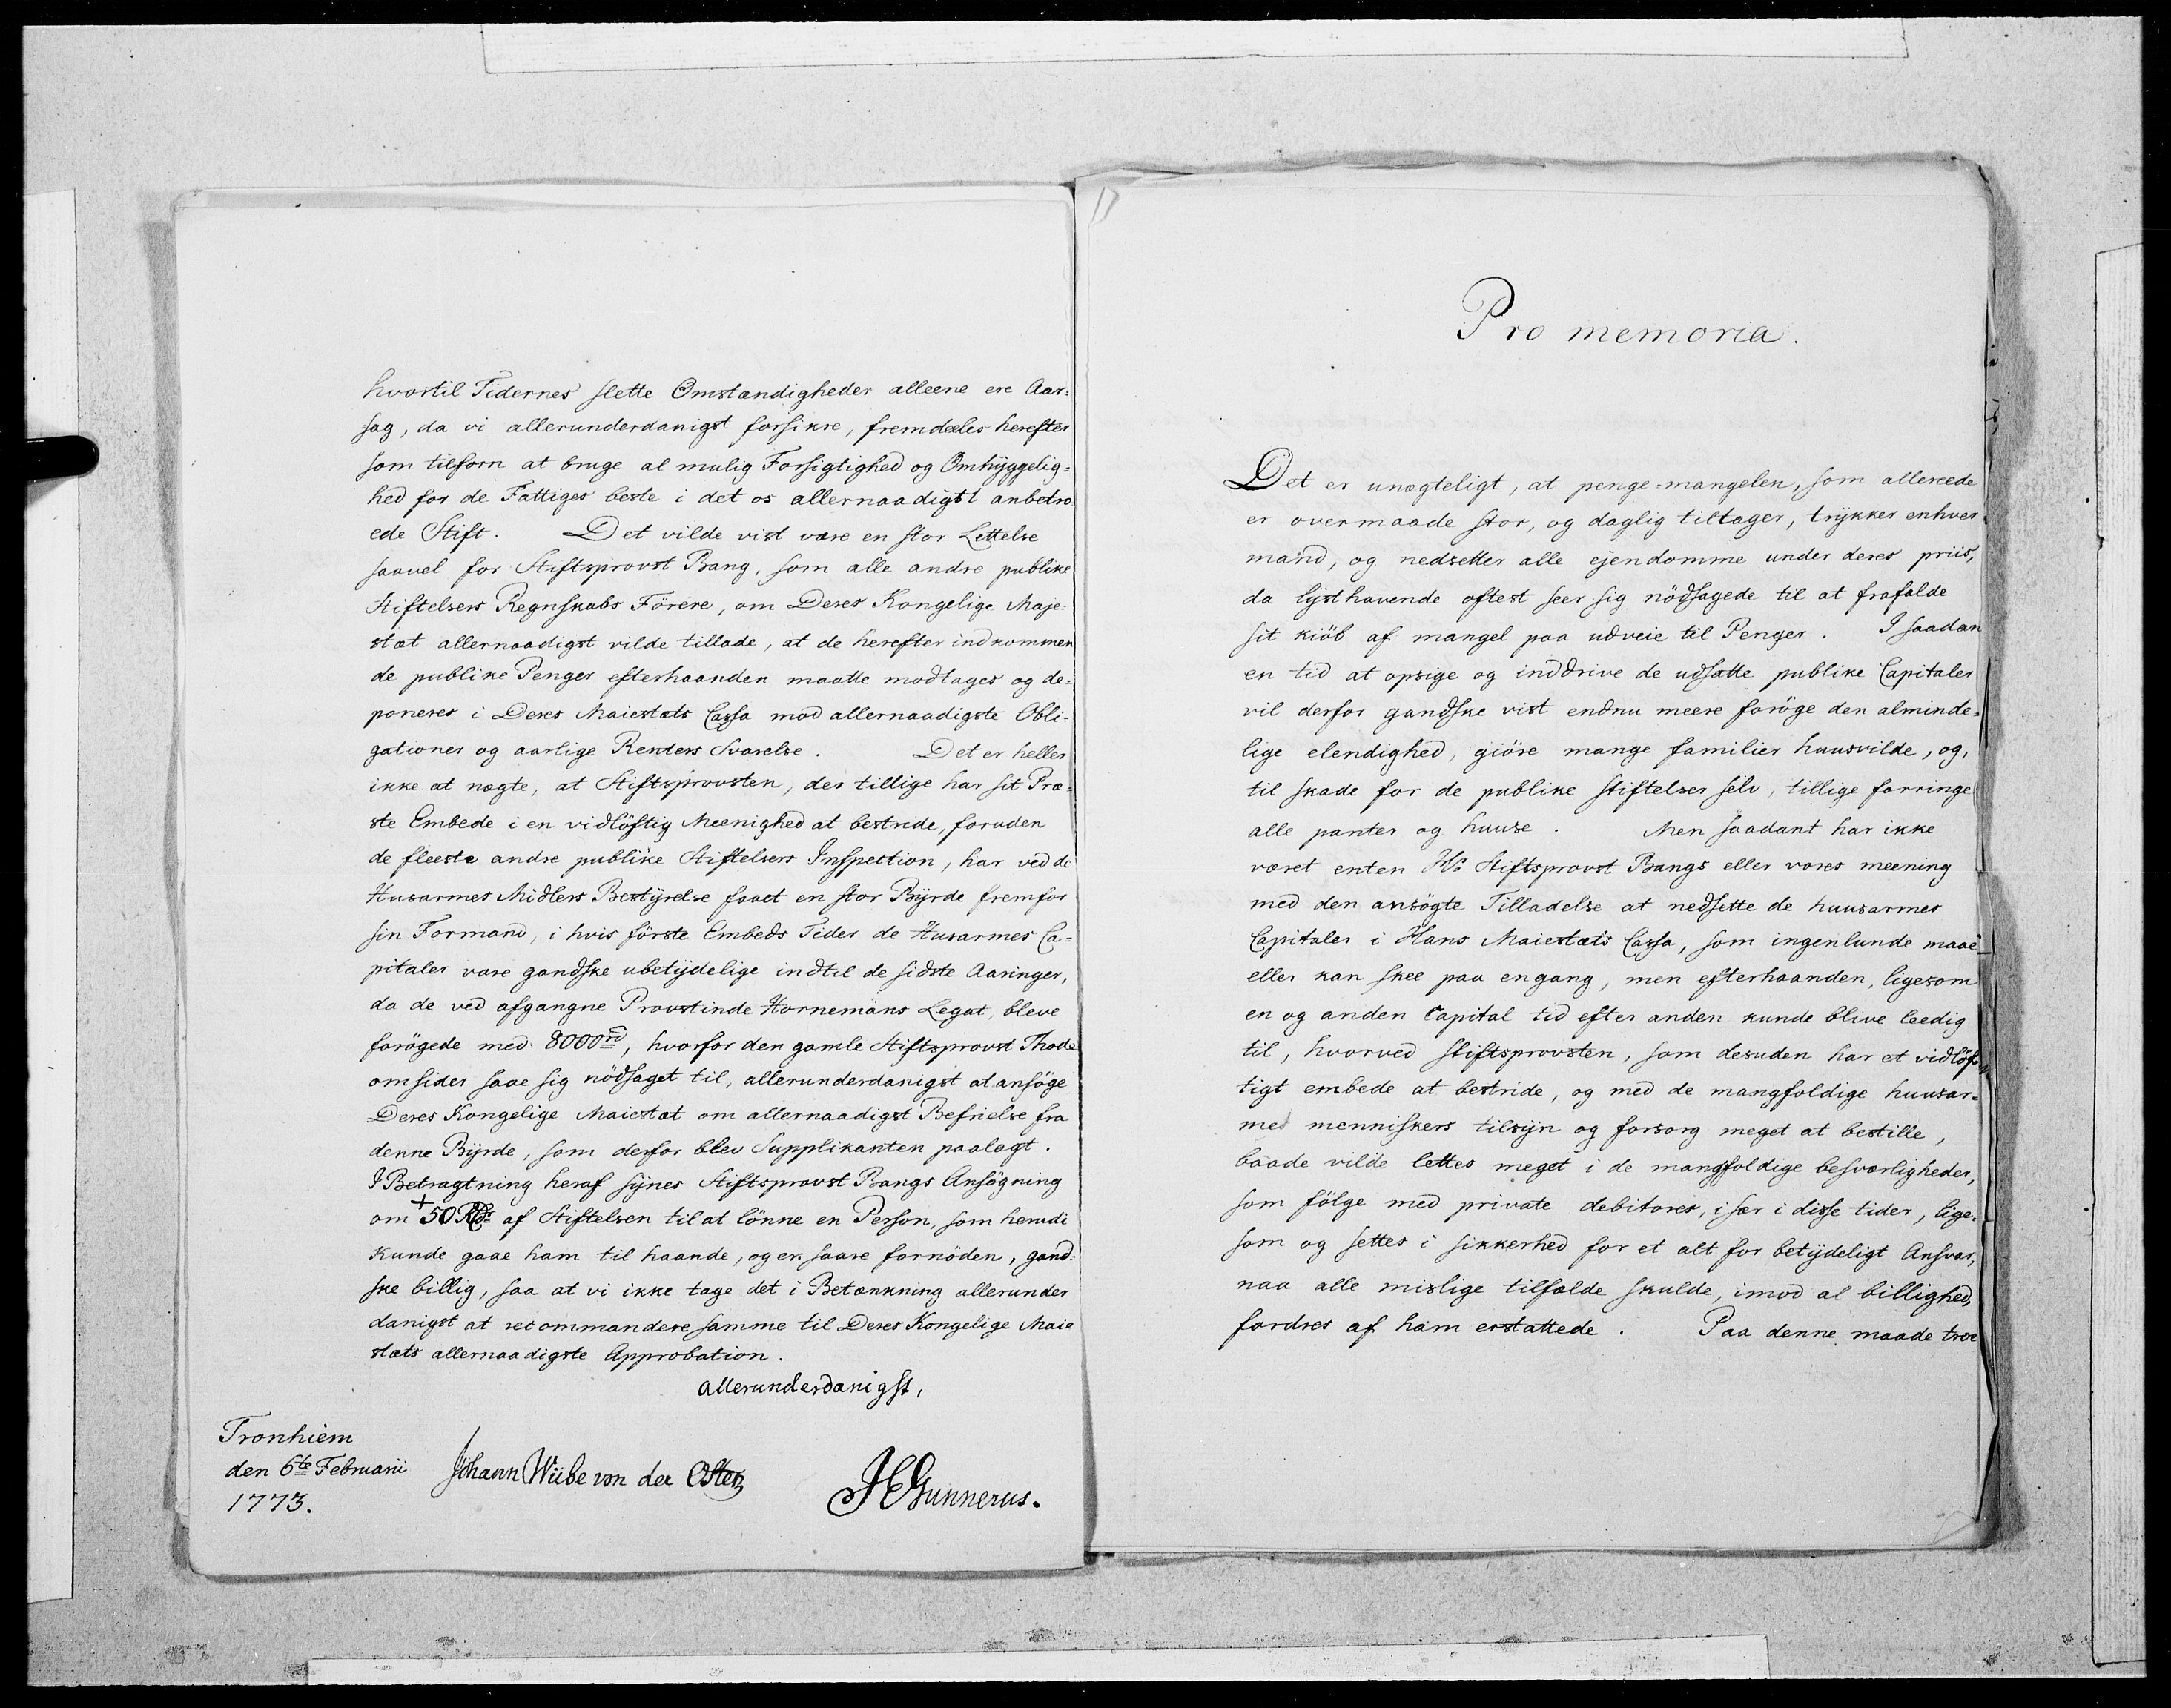 hvortil Tidernes slette Omstændigheder alleene ere Aar=
sag, da vi allerunderdanigst forsikre, fremdeeles herefter
som tilforn at bruge al mulig Forsigtighed og Omhyggelig=
hed for de Fattiges beste i det os allernaadigst anbetro
ede Stift. Det vilde vist være en stor Lettelse
saavel for Stiftsprovst Bang, som alle andre publike
Stiftelsers Regnskabs Förere, om Deres Kongelige Maje=
stæt allernaadigst vilde tillade, at de herefter indkommen
de publike Penger efterhaanden maatte modtages og de=
poneres i Deres Maiestæts Cassa mod allernaadigste Obli=
gationer og aarlige Renters Svarelse. Det er heller
ikke at nægte, at Stiftsprovsten, der tillige har sit Præ=
ste Embede i en vidlöftig Meenighed at bestride, foruden
de fleeste andre publike Stiftelsers Inspection, har ved de
Husarmes Midlers Bestyrelse faaet en stor Byrde fremfor
sin Formand, i hvis förste Embeds Tider de Husarmes Ca=
pitaler vare gandske ubetydelige indtil de sidste Aaringer,
da de ved afgangne Provstinde Hornemans Legat, bleve
forögede med 8000rd, hvorfor den gamle Stiftsprovst Thode
omsider saae sig nödsaget til, allerunderdanigst at ansöge
Deres Kongelige Maiestæt om allernaadigst Befrielse fra
denne Byrde, som derfor blev Supplikanten paalagt.
I Betragtning heraf synes Stiftsprovst Bangs Ansögning
om + 50 Rdr af Stiftelsen til at lönne en Person, som herudi
kunde gaae ham til haande, og er saare fornöden, gand=
ske billig, saa at vi ikke tage det i Betænkning allerunder
danigst at recommandere samme til Deres Kongelige Maie
stæts allernaadigste Approbation.
allerunderdanigst,
Tronhiem
den 6te Februarii
1773.
Johann Wibe von der Osten
JEGunnerus.
Pro memoria.
Det er unægteligt, at penge=mangelen, som allereede
er overmaade stor, og daglig tiltager, trykker enhver
mand, og nedsetter alle ejendomme under deres priis,
da lysthavende oftest seer sig nödsagede til at frafalde
sit kiöb af mangel paa udveie til Penger. I saadan
en tid at opsige og inddrive de udsatte publike Capitaler
vil derfor gandske vist endnu meere foröge den alminde=
lige elendighed, giöre mange familier huusvilde, og,
til skade for de publike stiftelser selv, tillige forringe
alle panter og huuse. Men saadant har ikke
været enten Hr Stiftsprovst Bangs eller vores meening
med den ansögte Tilladelse at nedsette de huusarmes
Capitaler i Hans Maiestæts Cassa, som ingenlunde maae
eller kan skee paa engang, men efterhaanden, ligesom
en og anden Capital tid efter anden kunde blive leedig
til, hvorved stiftsprovsten, som desuden har et vidlöf=
tigt embede at bestride, og med de mangfoldige huusar=
mes menniskers tilsyn og forsorg meget at bestille,
baade vilde lettes meget i de mangfoldige besværligheder,
som fölge med private debitorer, i sær i disse tider, lige=
som og settes i sikkerhed for et alt for betydeligt Ansvar,
naa alle mislige tilfælde skulde, imod al billighed,
fordres af ham erstattede. Paa denne maade troe